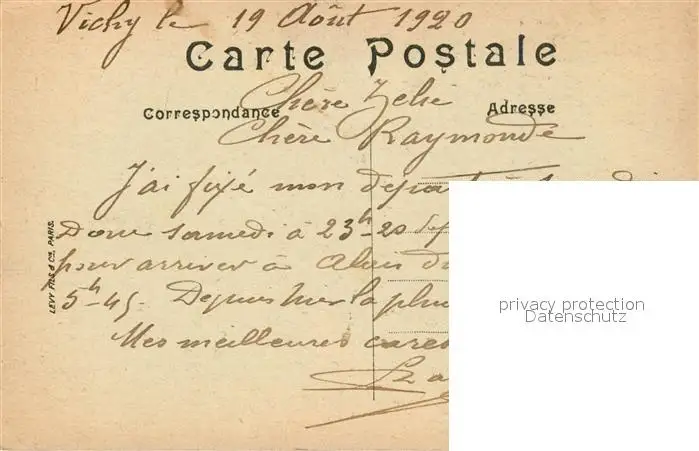 Vichy le 19 Août 1920
Carte Postale
Chère Zélie
Correspondance Adresse
Chère Raymonde
J'ai fixé mon départ à
Donc samedi à 23h-20
pour arriver à Alais
5h-45. Depuis hier la
Mes meilleures
LEVY FILS & Cie, PARIS.
privacy protection
Datenschutz